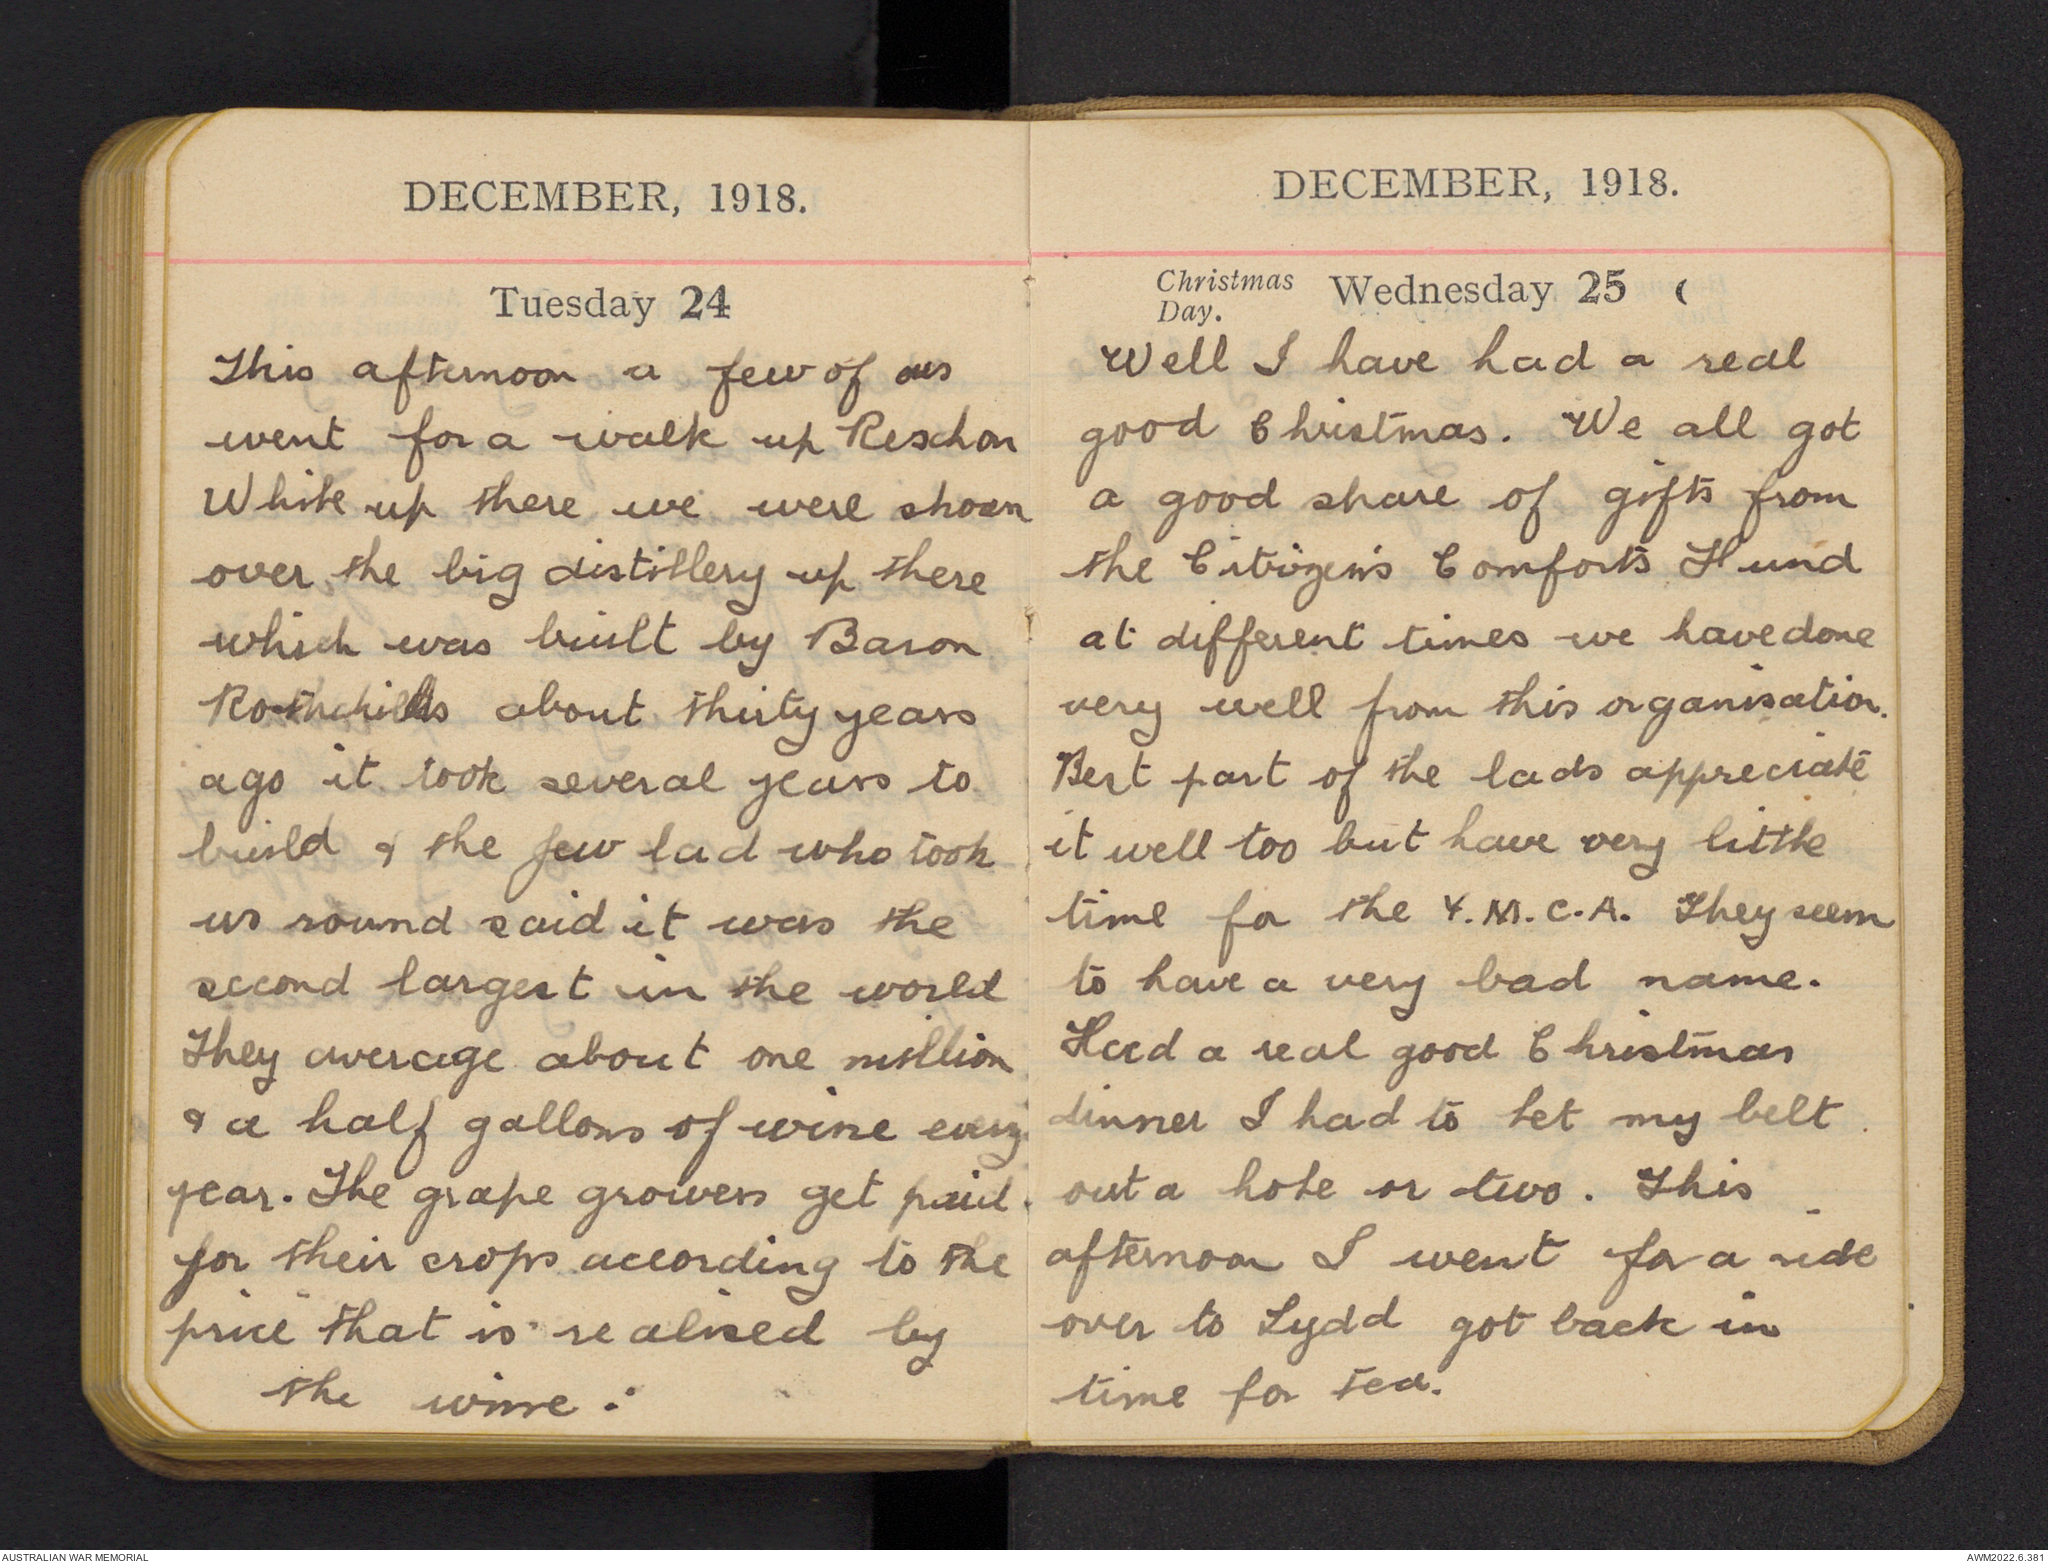 DECEMBER, 1918.
Tuesday 24
This afternoon a few of us
went for a walk up Reschon
White up there we were shown
over the big distillery up there
which was built by Baron
Rothchilds about thirty years
ago it took several years to
build & the few lad who took
us round said it was the
second largest in the world
They average about one million
& a half gallons of wine every
year. The grape growers get paid
for their crops according to the
price that is realised by
the wine.
DECEMBER, 1918.
Christmas Day. Wednesday 25
Well I have had a real
good Christmas. We all got
a good share of gifts from
the Citizens Comforts Fund
at different times we have done
very well from this organisation.
Best part of the lads appreciate
it well too but have very little
time for the Y.M.C.A. They seem
to have a very bad name.
Had a real good Christmas
dinner I had to let my belt
out a hole or two. This
afternoon I went for a ride
over to Lydd got back in
time for tea.
AUSTRALIAN WAR MEMORIAL
AWM2022.6.381